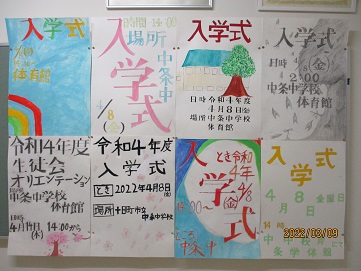 入学式
体育館
時間 14:00
場所
中条中
入学式
4/8
入学式
日時 令和4年度
4月8日(金)
場所 中条中学校
体育館
入学式
日時 4/8(金)
2:00
中条中学校
体育館
令和4年度
生徒会
オリエンテーション
中条中学校
体育館
4月14日
(木) 14:00から
令和4年度
入学式
とき 2022年4月8日(金)
場所 十日町市立
中条中学校
入学式
とき 令和
4年
4/8
(金)
14:00〜
ところ
中条中
入学式
4月8日
金曜日
14時
中条中学校
体育館
2022/03/09